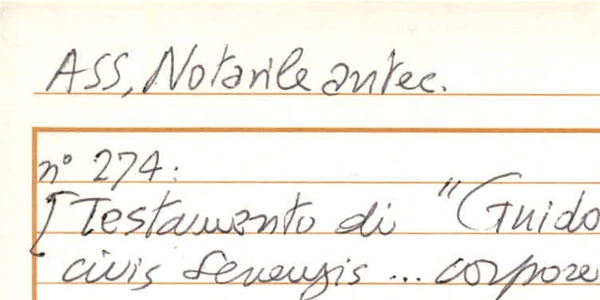 ASS, Notarile antec.
n° 274:
[Testamento di "Guido
civis Senensis ... corpore